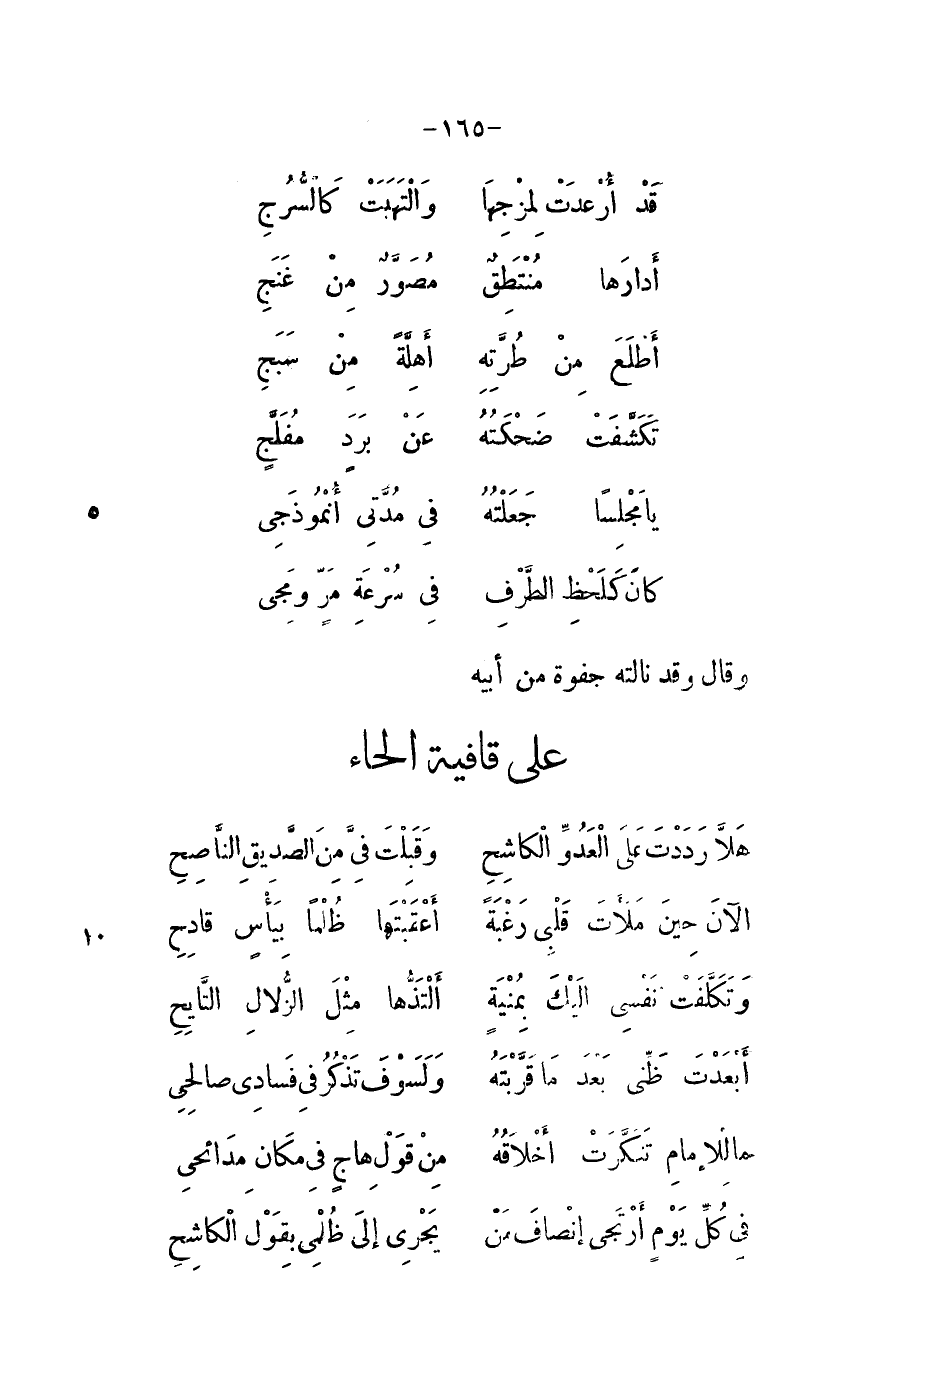 -١٦٥-
قَدْ أُرْعِدَتْ لِمَزْجِهَا وَالْتَهَبَتْ كَالسُّرُجِ
أَدارَها مُنْتَطِقٌ مُصَوَّرٌ مِنْ غَنَجِ
أَطْلَعَ مِنْ طُرَّتِهِ أَهِلَّةً مِنْ سَبَجِ
تَكَشَّفَتْ ضَحْكَتُهُ عَنْ بَرَدٍ مُفَلَّجِ
٥ يا مَجْلِسًا جَعَلْتُهُ فِي مُدَّتِي أُنْمُوذَجِي
كانَ كَلَحْظِ الطَّرْفِ فِي سُرْعَةِ مَرٍّ ومَجِي
وقال وقد نالته جفوة من أبيه
على قافية الحاء
هَلاَّ رَدَدْتَ عَلَى الْعَدُوِّ الْكاشِحِ وَقَبِلْتَ فِيَّ مِنَ الصَّدِيقِ النَّاصِحِ
١٠ الآنَ حِينَ مَلَأْتَ قَلْبِي رَغْبَةً أَعْقَبْتَها ظُلْمًا بِيَأْسٍ قادِحِ
وَتَكَلَّفَتْ نَفْسِي الَيْكَ بِمُنْيَةٍ أَلْتَذُّها مِثْلَ الزُّلالِ النَّايِحِ
أَبْعَدْتَ ظَنِّي بَعْدَ مَا قَرَّبْتَهُ وَلَسَوْفَ تَذْكُرُ فِي فَسادِي صالِحِي
ما لِلْإِمامِ تَنَكَّرَتْ أَخْلاقُهُ مِنْ قَوْلِ هاجٍ فِي مَكانِ مَدَائِحِي
فِي كُلِّ يَوْمٍ أَرْتَجِي إِنْصافَ مَنْ يَجْرِي إِلَى ظُلْمِي بِقَوْلِ الْكاشِحِ